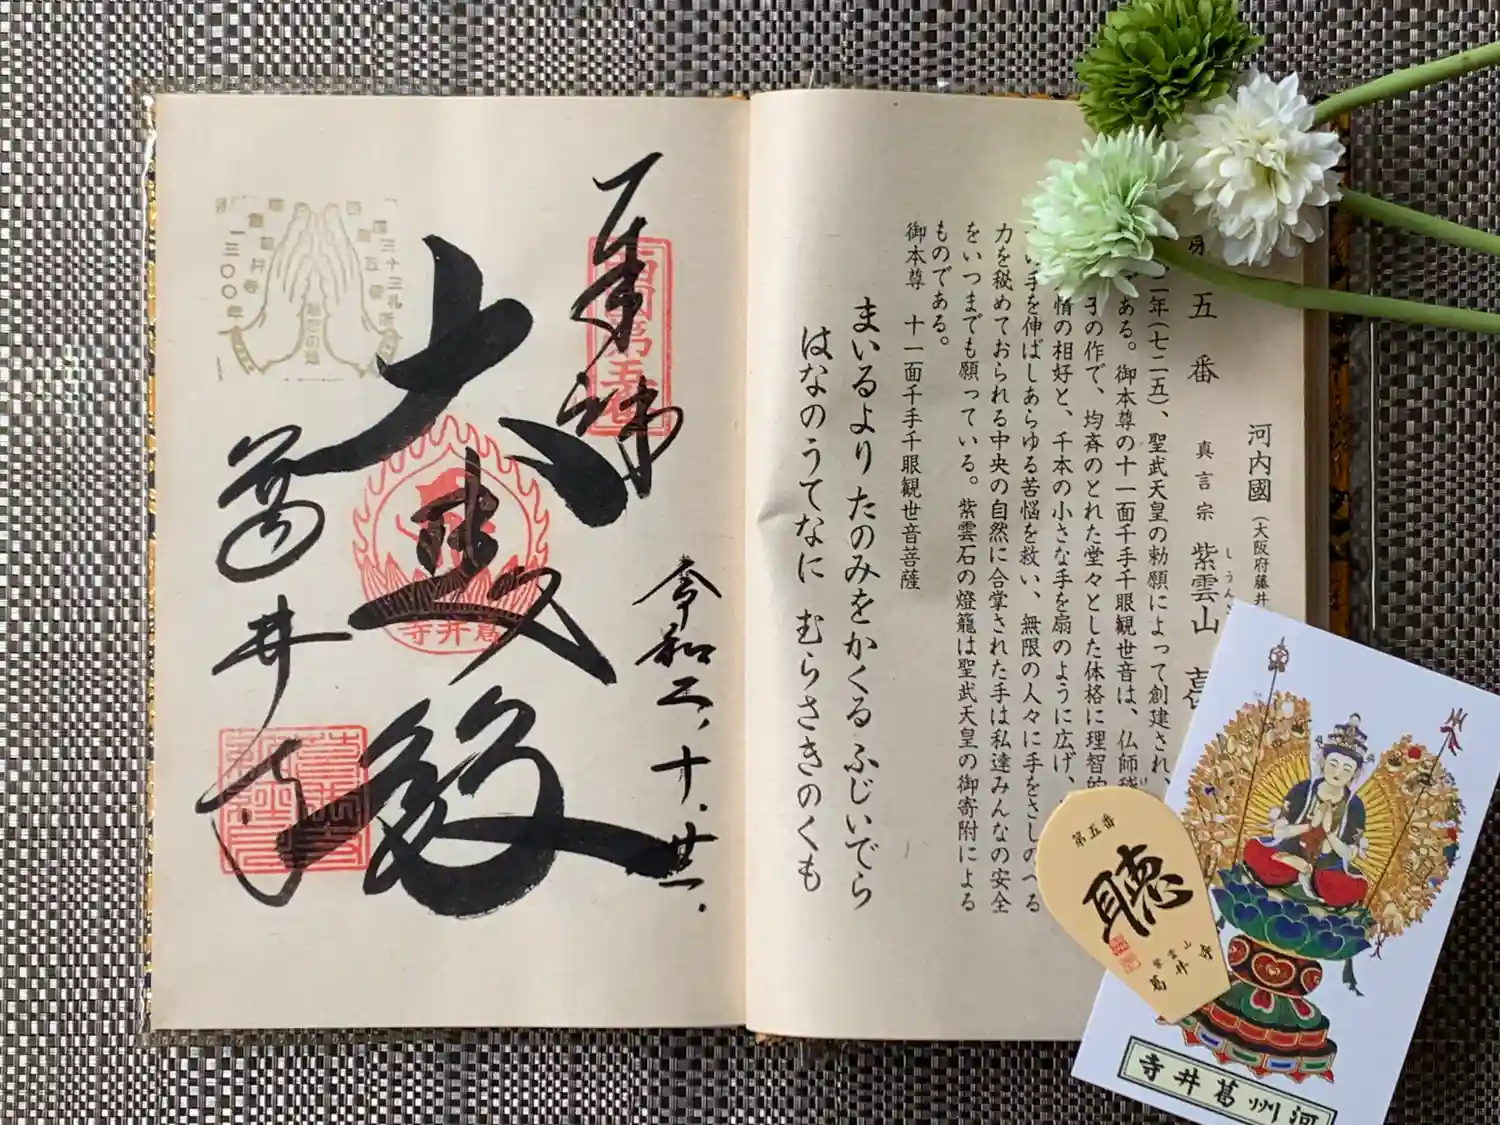 河内國(大阪府藤井
真言宗 紫雲山
しうん
五番
二年(七二五)、聖武天皇の勅願によって創建され、
ある。御本尊の十一面千手千眼観世音は、仏師稽
子の作で、均斉のとれた堂々とした体格に理智的
情の相好と、千本の小さな手を扇のように広げ、
い手を伸ばしあらゆる苦悩を救い、無限の人々に手をさしのべる
力を秘めておられる中央の自然に合掌された手は私達みんなの安全
をいつまでも願っている。紫雲石の燈籠は聖武天皇の御寄附による
ものである。
御本尊 十一面千手千眼観世音菩薩
まいるより たのみをかくる ふじいでら
はなのうてなに むらさきのくも
奉拝
西国第五番
令和二、十、廿一、
大悲殿
葛井寺
葛井寺
三十三所
葛井寺
一三〇〇年
第五番
聴
紫雲山
葛井寺
河州葛井寺